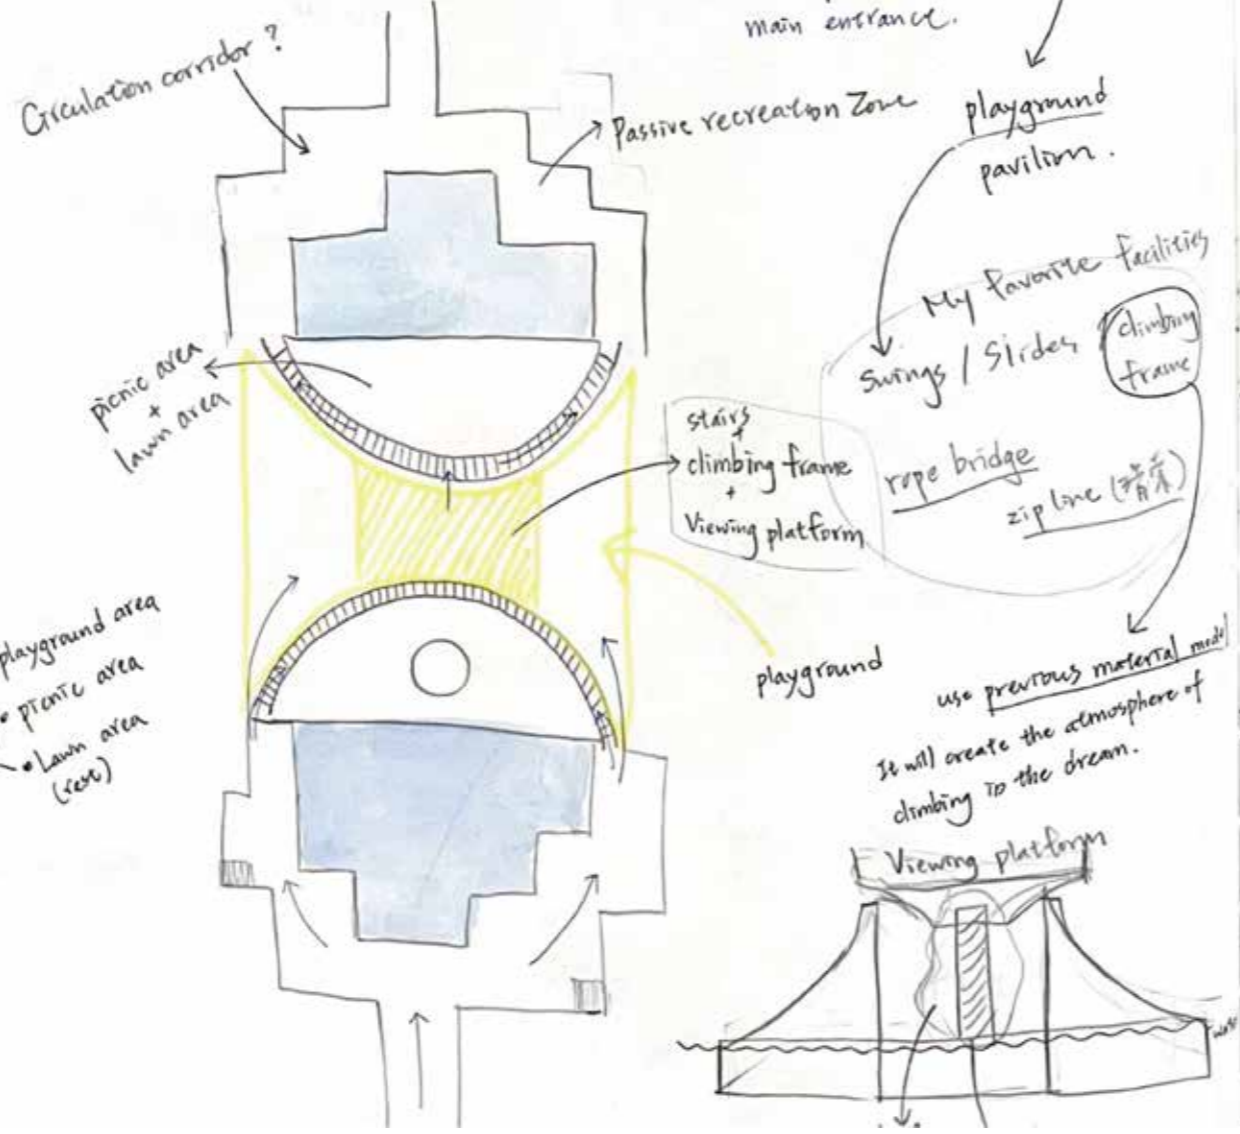 main entrance.
Circulation corridor?
Passive recreation Zone
playground
pavilion.
My favorite facilities
Swings / Slides
climbing
frame
rope bridge
zip line
picnic area
+
lawn area
stairs
+
climbing frame
+
Viewing platform
playground
playground area
• picnic area
• Lawn area
(rest)
use previous material model
It will create the atmosphere of
climbing in the dream.
Viewing platform